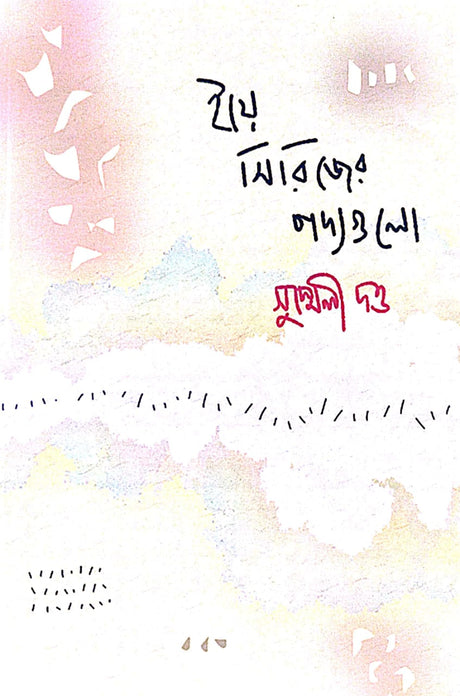 ইয়ে
সিরিজের
পদ্যগুলো
সুস্মেলী দত্ত